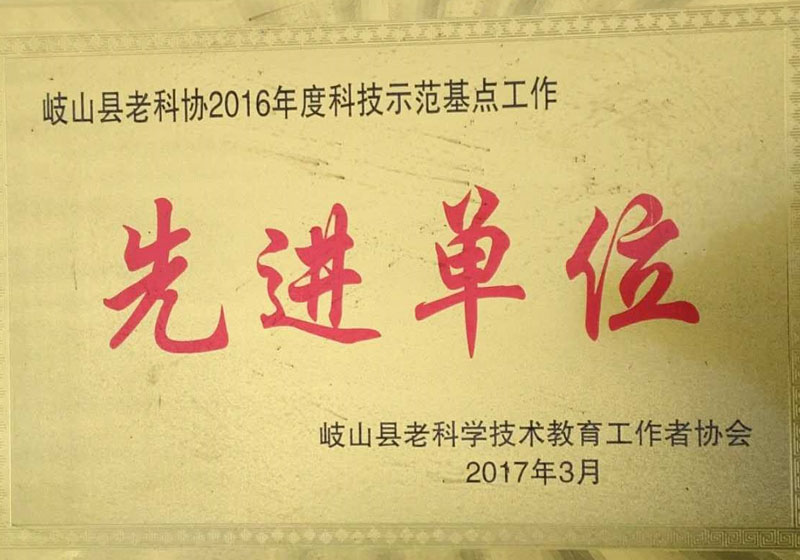 岐山县老科协2016年度科技示范基点工作
先进单位
岐山县老科学技术教育工作者协会
2017年3月